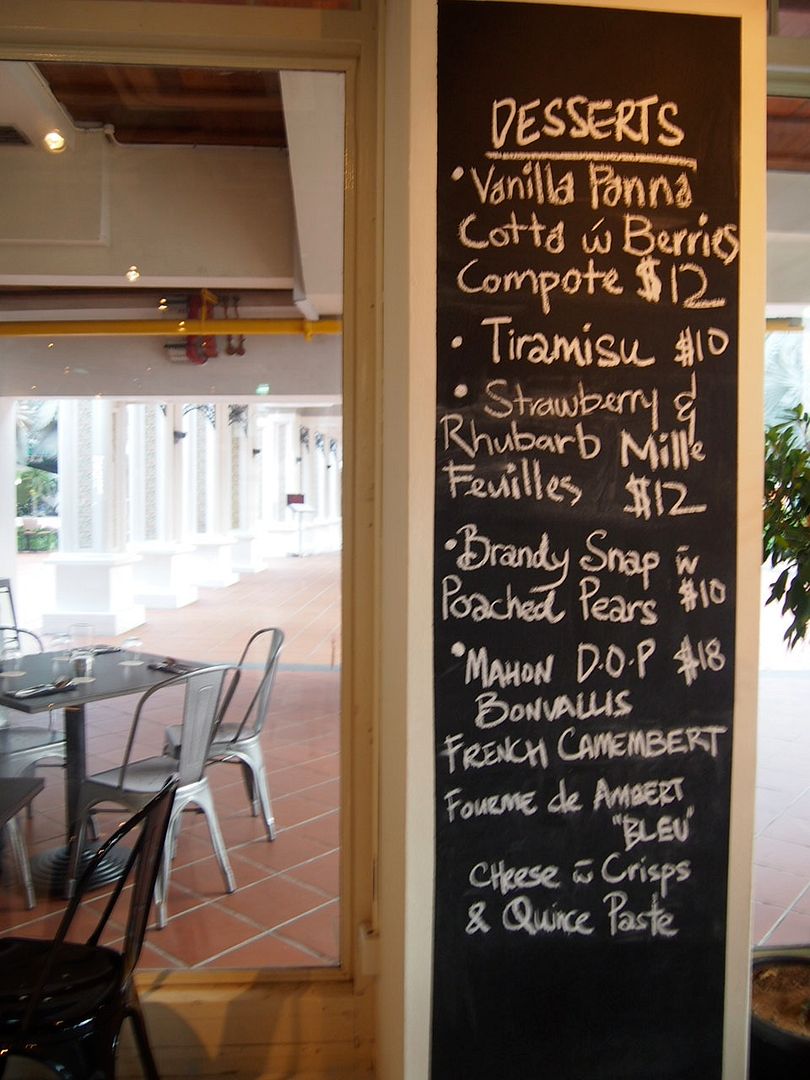 DESSERTS
• Vanilla Panna
Cotta w̄ Berries
Compote $12
• Tiramisu $10
• Strawberry &
Rhubarb Mille
Feuilles $12
• Brandy Snap w̄
Poached Pears $10
• MAHON D.O.P $18
BONVALLIS
FRENCH CAMEMBERT
FOURME de AMBERT
"BLEU"
CHeese w̄ Crisps
& Quince Paste